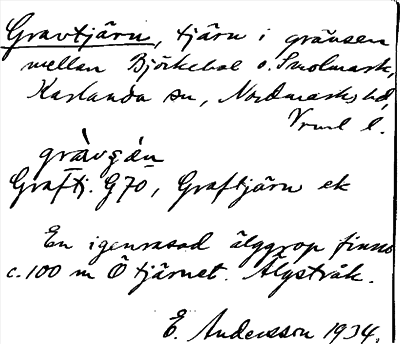 Gravtjärn, tjärn i gränsen
mellan Björkebol o. Smolmark,
Karlanda sn, Nordmarks hd,
Vrml l.
gràvçä́n
Graftj. G70, Graftjärn ek
En igenrasad älggrop finns
c. 100 m Ö tjärnet. Älgstråk.
E. Andersson 1934.